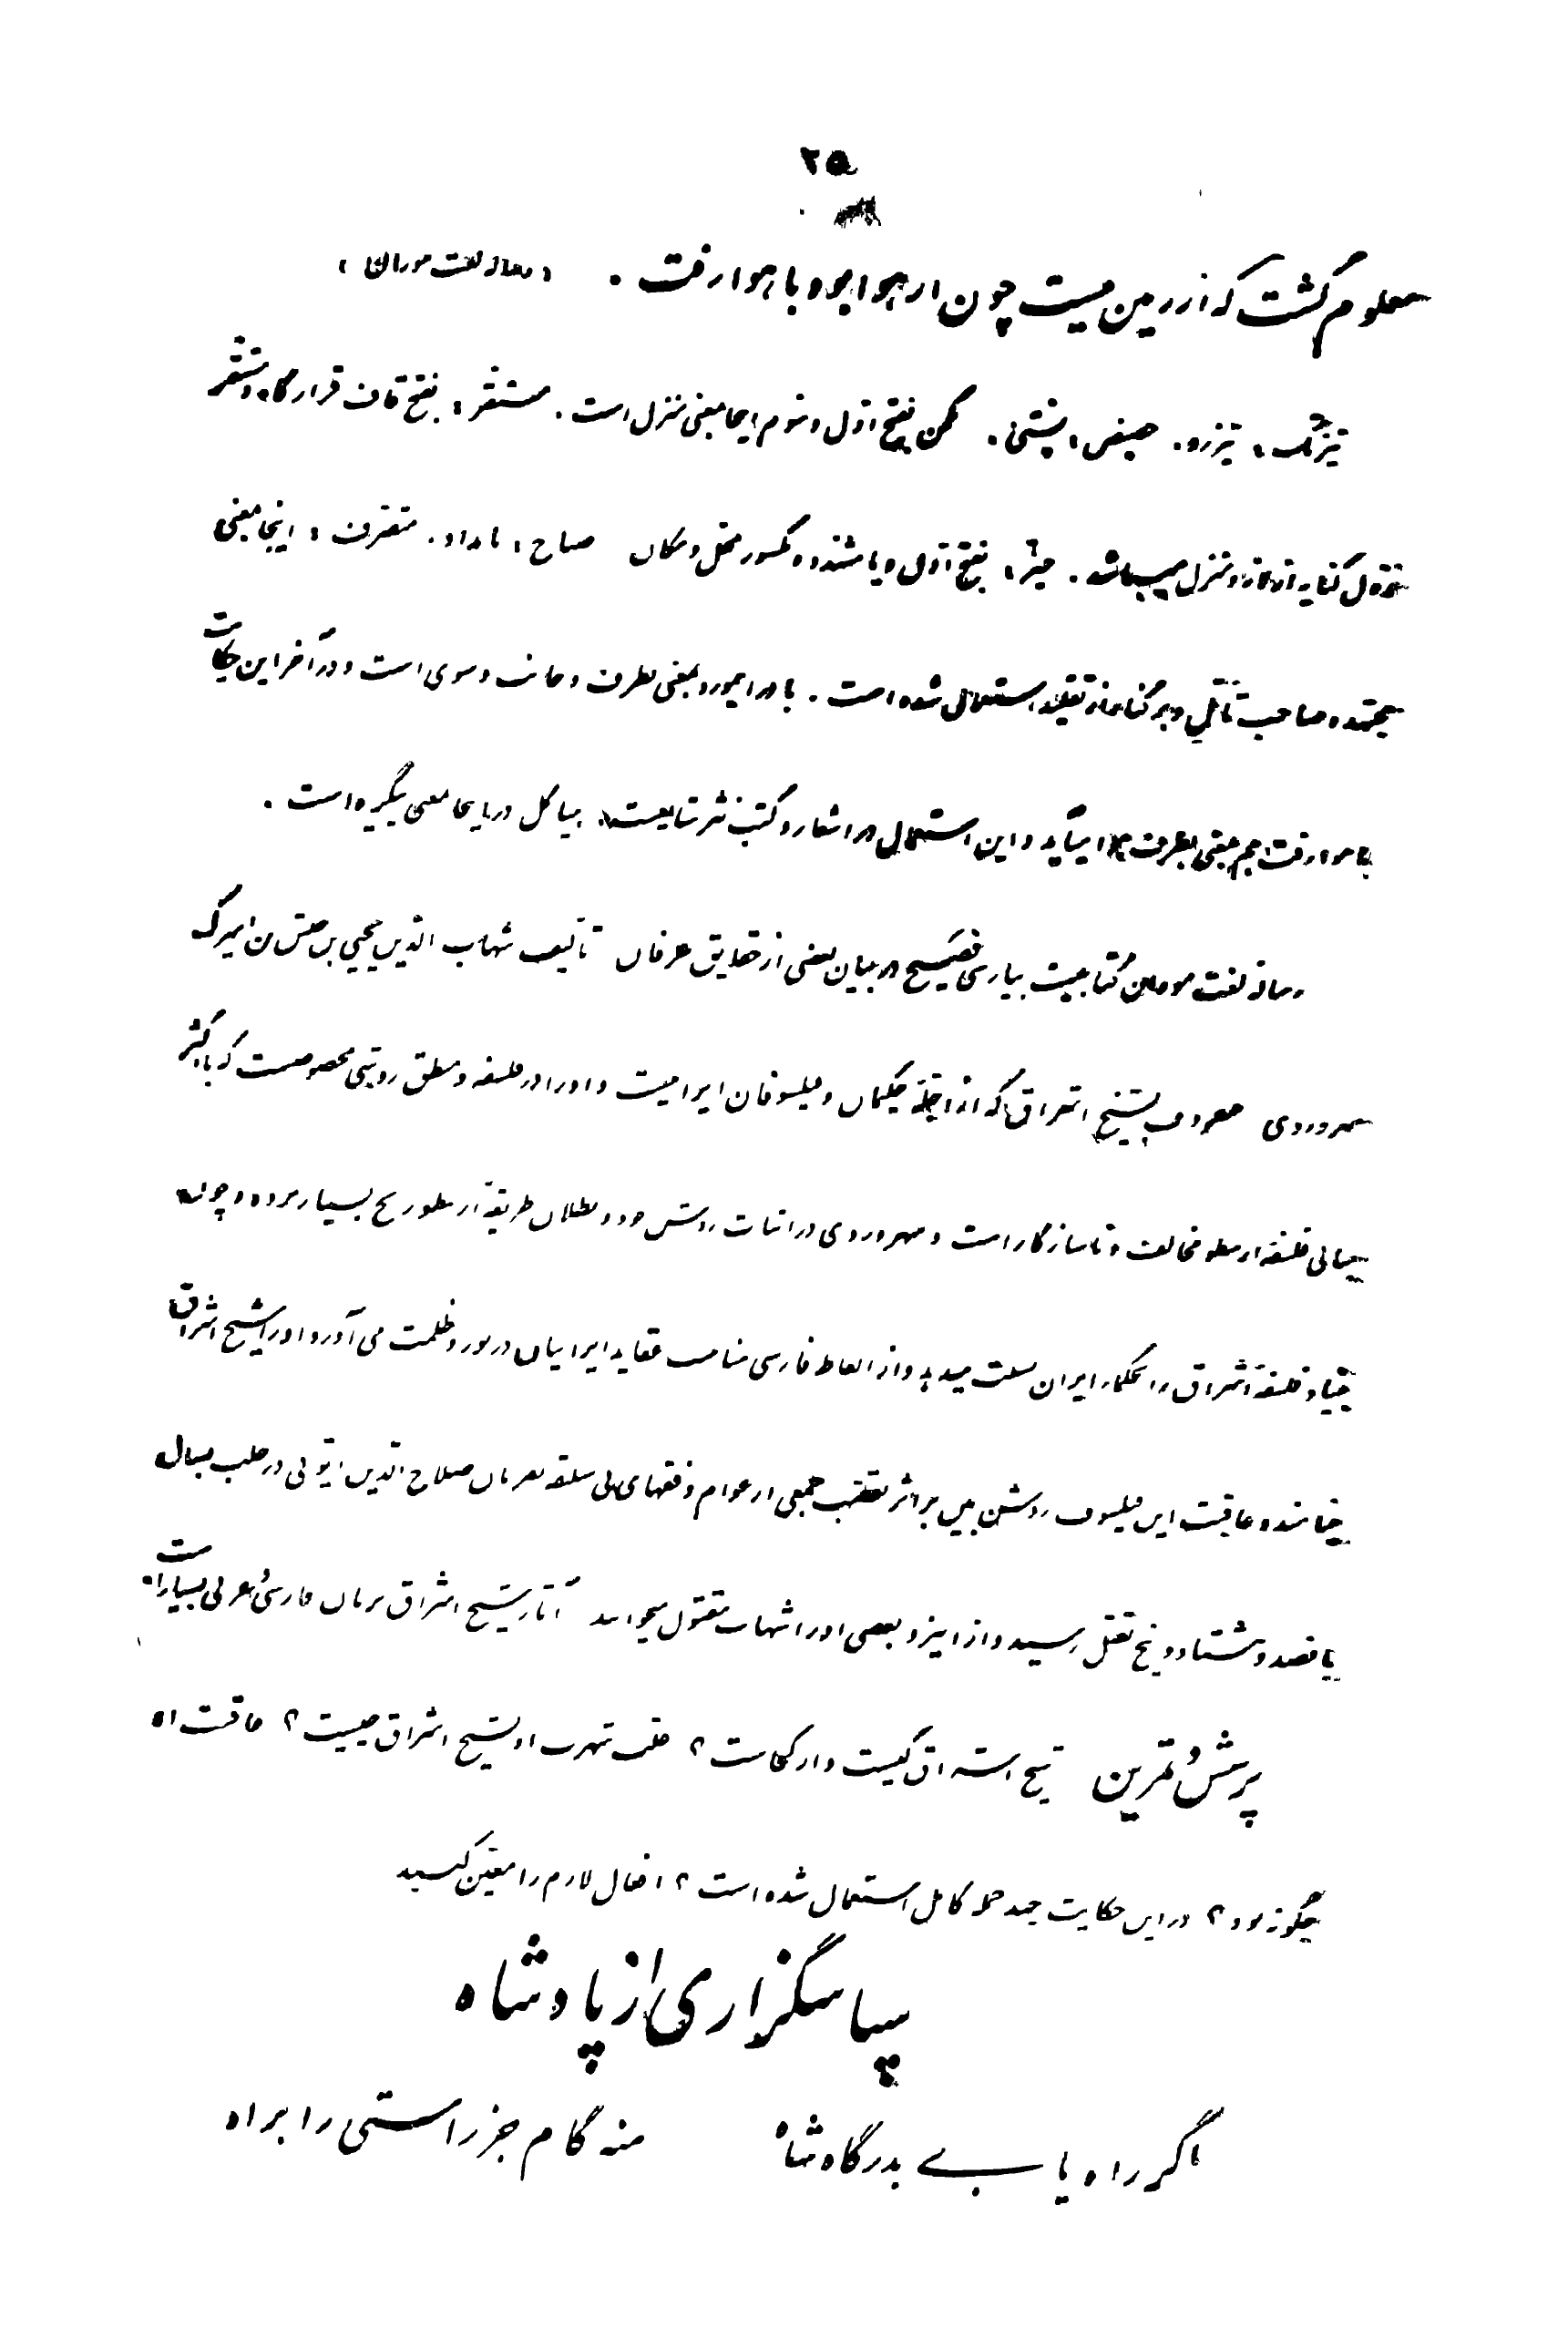 ۲۵
معلوم گشت که از زمین نیست چون از هوا بود با هوا رفت . (رساله لغت موران)
تیزتگ ، تیزرو . حضیض ، پستی . مکمن بفتح اول و سوم اینجا بمعنی منزل است . مستقر ، بفتح قاف قرارگاه و مستقر
نزول کنایه از خانه و منزل میباشد . حیّز ، بفتح اول و یا مشدد و مکسور محل و مکان صباح ، بامداد . متصرف ، اینجا بمعنی
مجتهد و صاحب تأمل و استعمال شده است . با در اینمورد بمعنی طرف و جانب و سوی است و در آخر این حکایت
با هوا رفت هم بمعنی بطرف هوا میآید و این استعمال در اشعار و کتب نثر شایعست . هیاکل در اینجا معنی پیکره است .
رساله لغت موران کتابیست بپارسی فصیح در بیان بعضی از حقایق عرفان تألیف شهاب الدین یحیی بن حبش بن امیرک
سهروردی معروف بشیخ اشراق که از اجله حکیمان و فیلسوفان ایرانیست و او را در فلسفه و منطق روشی مخصوصست که با اکثر
مبانی فلسفه ارسطو مخالف و ناسازگار است و سهروردی در اثبات روش خود و بطلان طریقه ارسطو رنج بسیار برده و چون
بنیاد فلسفه اشراق را بحکماء ایران نسبت میدهد و از الفاظ فارسی مناسب عقاید ایرانیان در نور و ظلمت می آورد او را شیخ اشراق
خوانده‌اند و عاقبت این فیلسوف روشن بین بر اثر تعصب جمعی از عوام و فقهای بی سلیقه بفرمان صلاح الدین ایوبی در حلب بسال
پانصد و هشتاد و پنج بقتل رسید و از اینرو بعضی او را شهاب مقتول میخوانند آثار شیخ اشراق بزبان فارسی و عربی بسیار است
پرسش و تمرین شیخ اشراق کیست و از کجاست ؟ علت شهرت او بشیخ اشراق چیست ؟ عاقبت او
چگونه بود ؟ در این حکایت چند جمله کامل استعمال شده است ؟ افعال لازم را معین کنید
سپاسگزاری از پادشاه
اگر راه یابی بدرگاه شاه منه گام جز راستی را براه